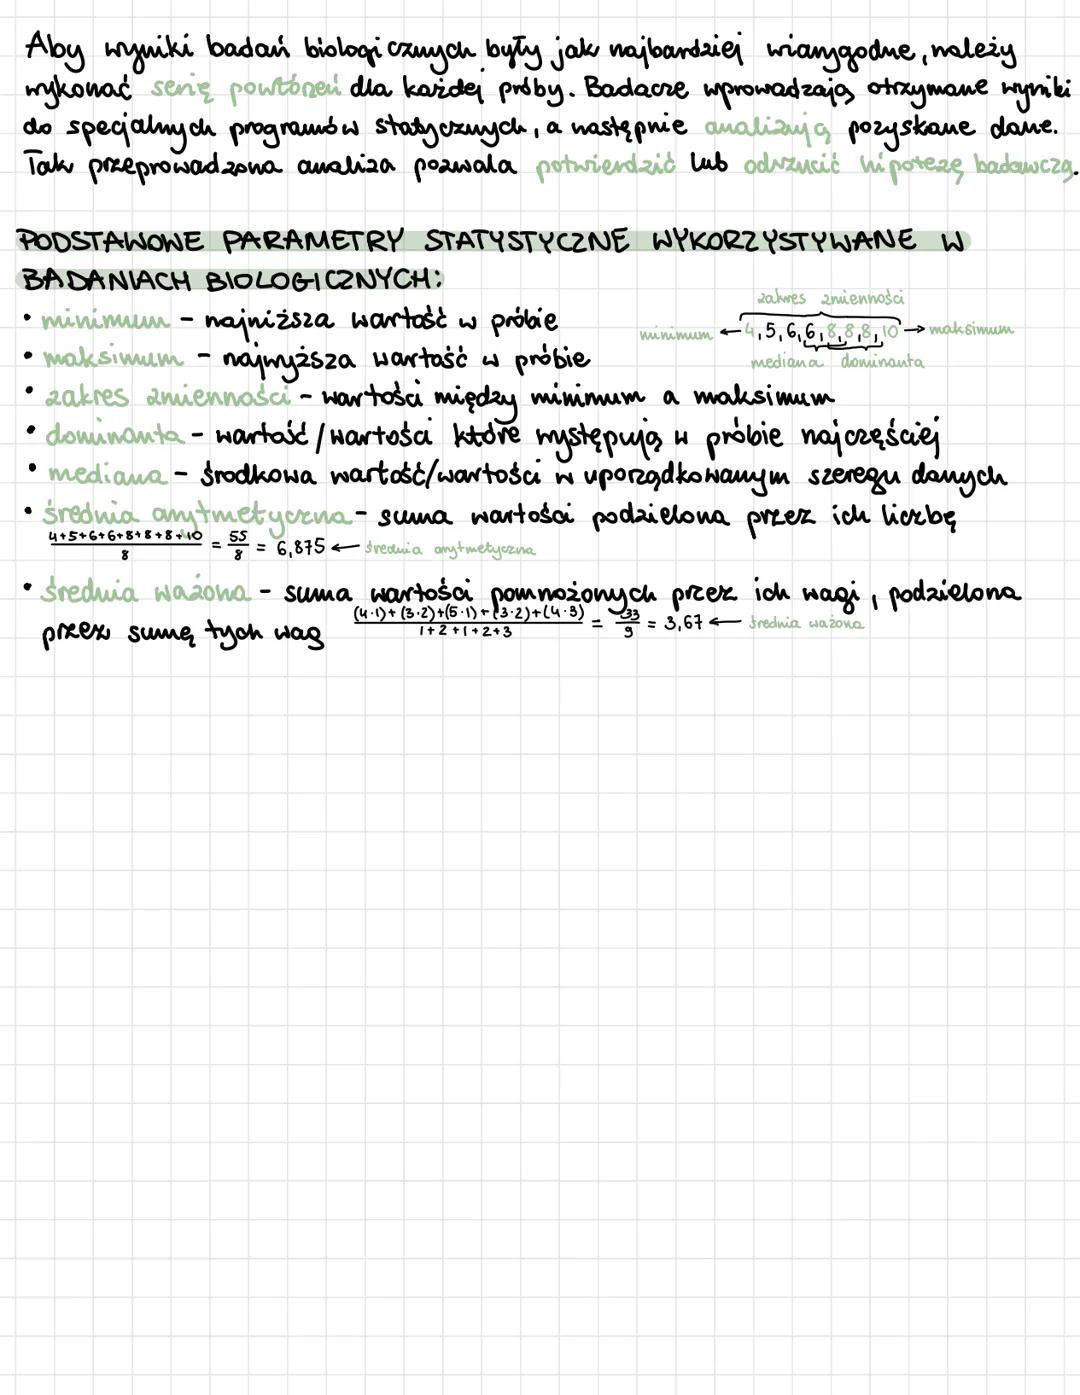 Aby wyniki badań biologicznych były jak najbardziej wiarygodne, należy
wykonać serię powtórzeń dla każdej próby. Badacze wprowadzają otrzymane wyniki
do specjalnych programów statycznych, a następnie analizują pozyskane dane.
Tak przeprowadzona analiza pozwala potwierdzić lub odrzucić hipotezę badawczą.
PODSTAWOWE PARAMETRY STATYSTYCZNE WYKORZYSTYWANE W
BADANIACH BIOLOGICZNYCH:
zakres zmienności
• minimum - najniższa wartość w próbie
minimum ← 4, 5, 6, 6, 8, 8, 8, 10 → maksimum
• maksimum - najwyższa wartość w próbie
mediana dominanta
• zakres zmienności - wartości między minimum a maksimum
• dominanta - wartość / wartości które występują w próbie najczęściej
• mediana - środkowa wartość/wartości w uporządkowanym szeregu danych
• średnia arytmetyczna - suma wartości podzielona przez ich liczbę
4+5+6+6+8+8+8+10
8
= 55/8 = 6,875 ← średnia arytmetyczna
• średnia ważona - suma wartości pomnożonych przez ich wagi, podzielona
przez sumę tych wag
(4·1)+(3·2)+(5·1)+(3·2)+(4·3)
1+2+1+2+3
= 33/9 = 3,67 ← średnia ważona